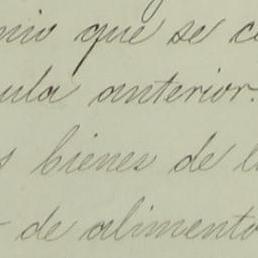 nio que se ce
ula anterior.
s bienes de l
de alimento